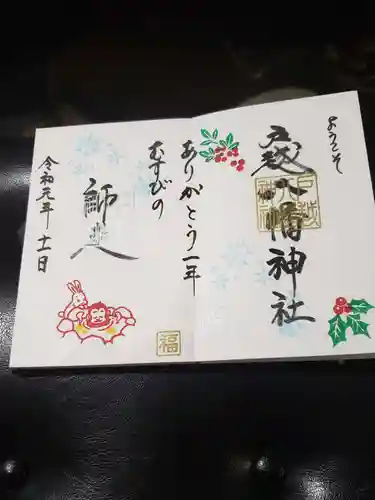 ようこそ
戸越八幡神社
ありがとう一年
むすびの
師走
令和元年十一日
福